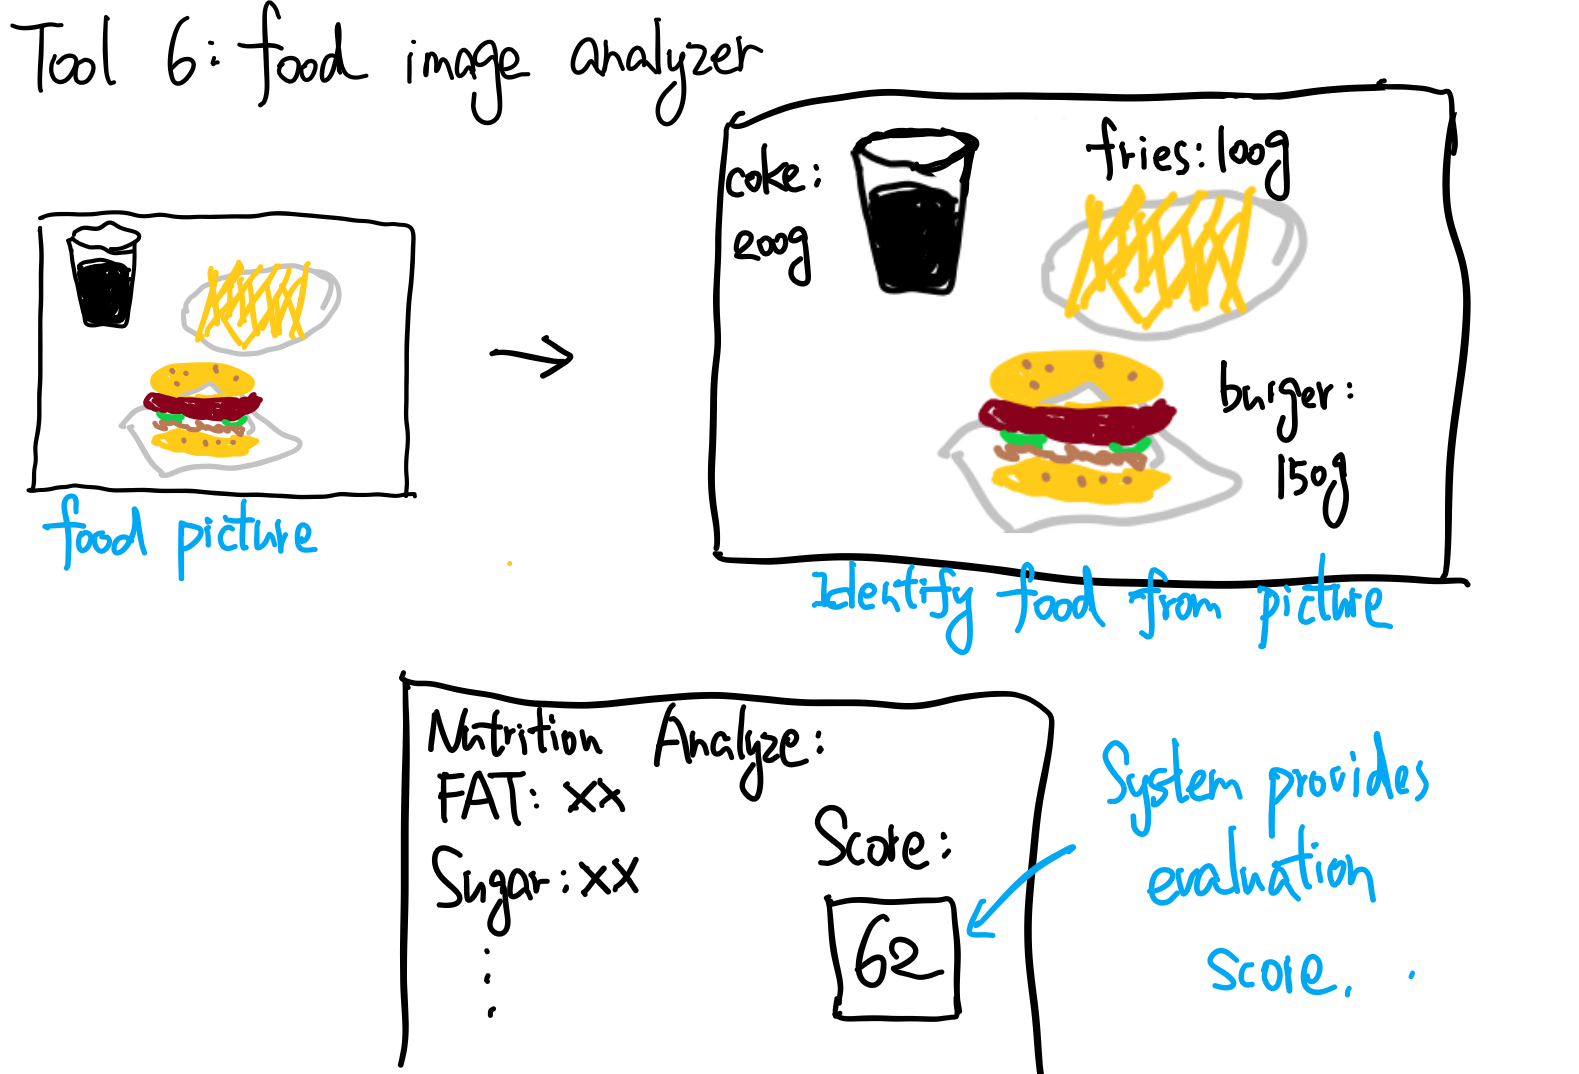 Tool 6: food image analyzer
coke:
200g
fries: 100g
burger:
150g
food picture
Identify food from picture
Nutrition Analyze:
FAT: xx
Sugar: xx
Score:
62
System provides
evaluation
score.